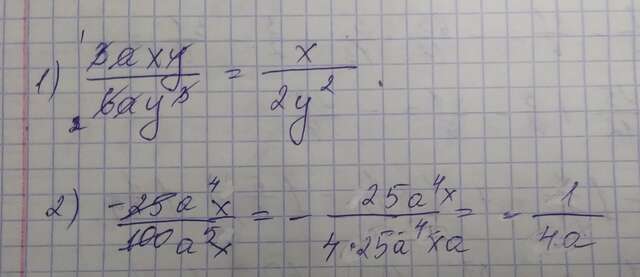 1) 3axy/6ay³ = x/2y².
2) -25a⁴x/100a⁵x = - 25a⁴x/4·25a⁴xa = - 1/4a